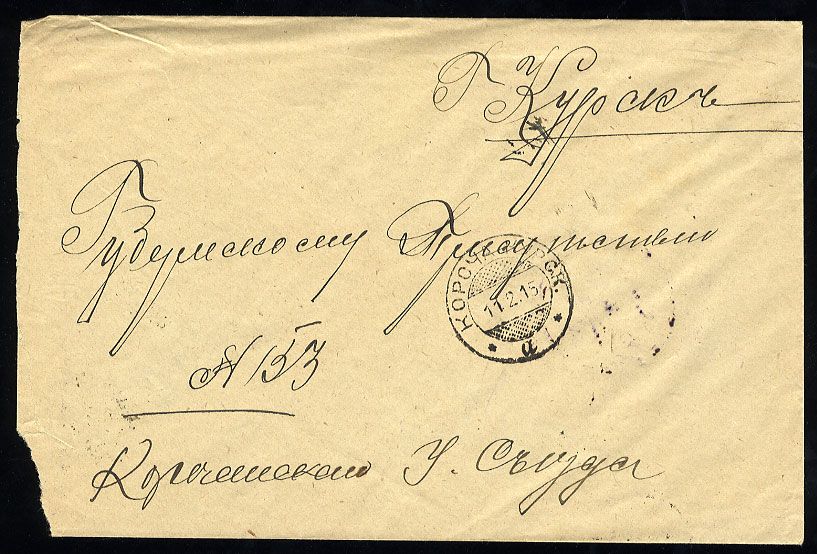 Г Курскъ
Губернскому Присутствію
КОРОЧА КУРСК.
11.2.15
а
N 153
Корочанскаго У. Съѣзда